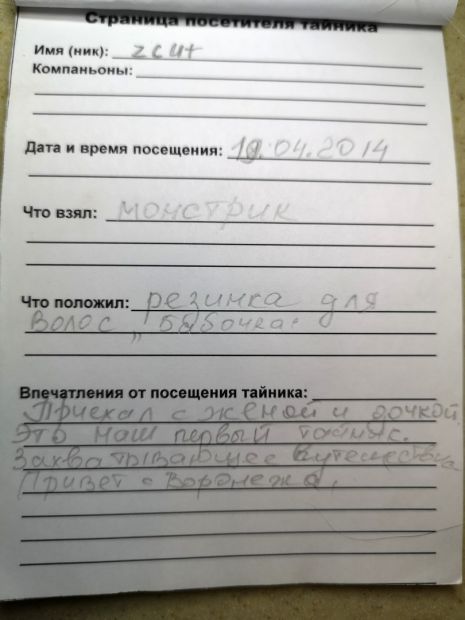 Страница посетителя тайника
Имя (ник): zcut
Компаньоны:
Дата и время посещения: 19.04.2014
Что взял: монстрик
Что положил: резинка для
волос „бабочка"
Впечатления от посещения тайника:
Приехал с женой и дочкой.
Это наш первый тайник.
Захватывающее путешествие
Привет с Воронежа.